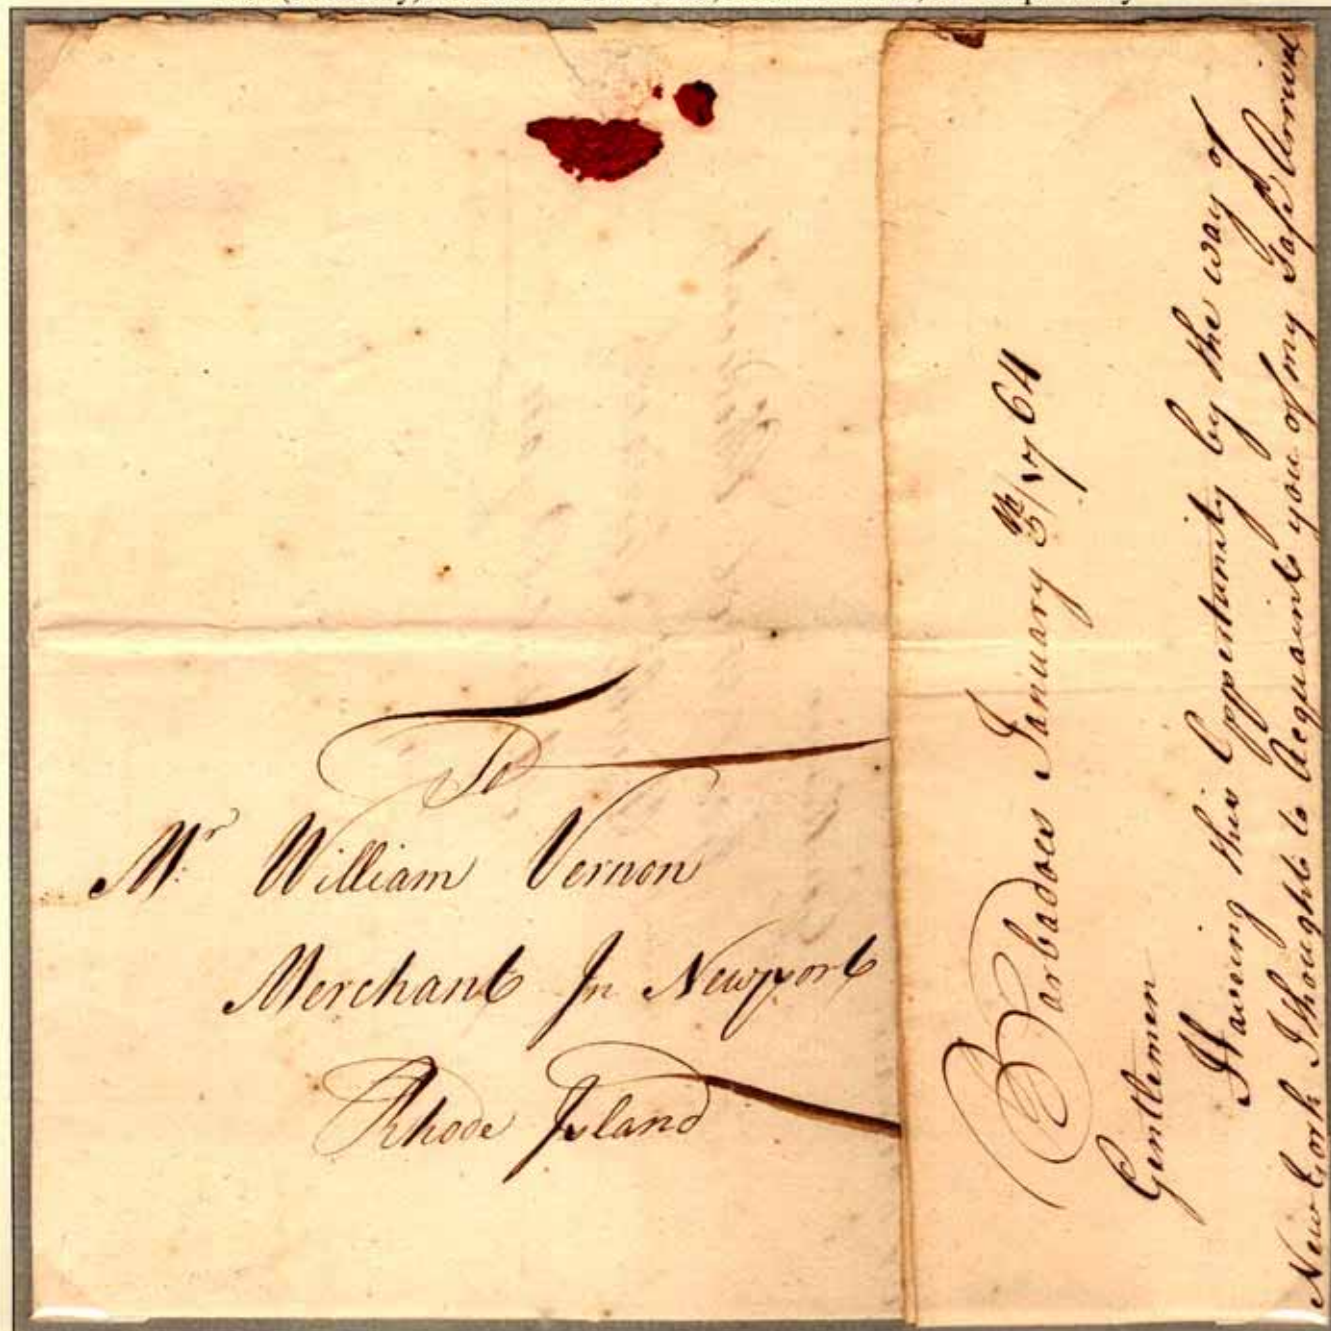 To
Mr William Vernon
Merchant In Newport
Rhode Island
Barbadoes January 1764
Gentlemen
Haveing this Oppertunity by the way of
New York I thought to Acquaint you of my Safe Arrival